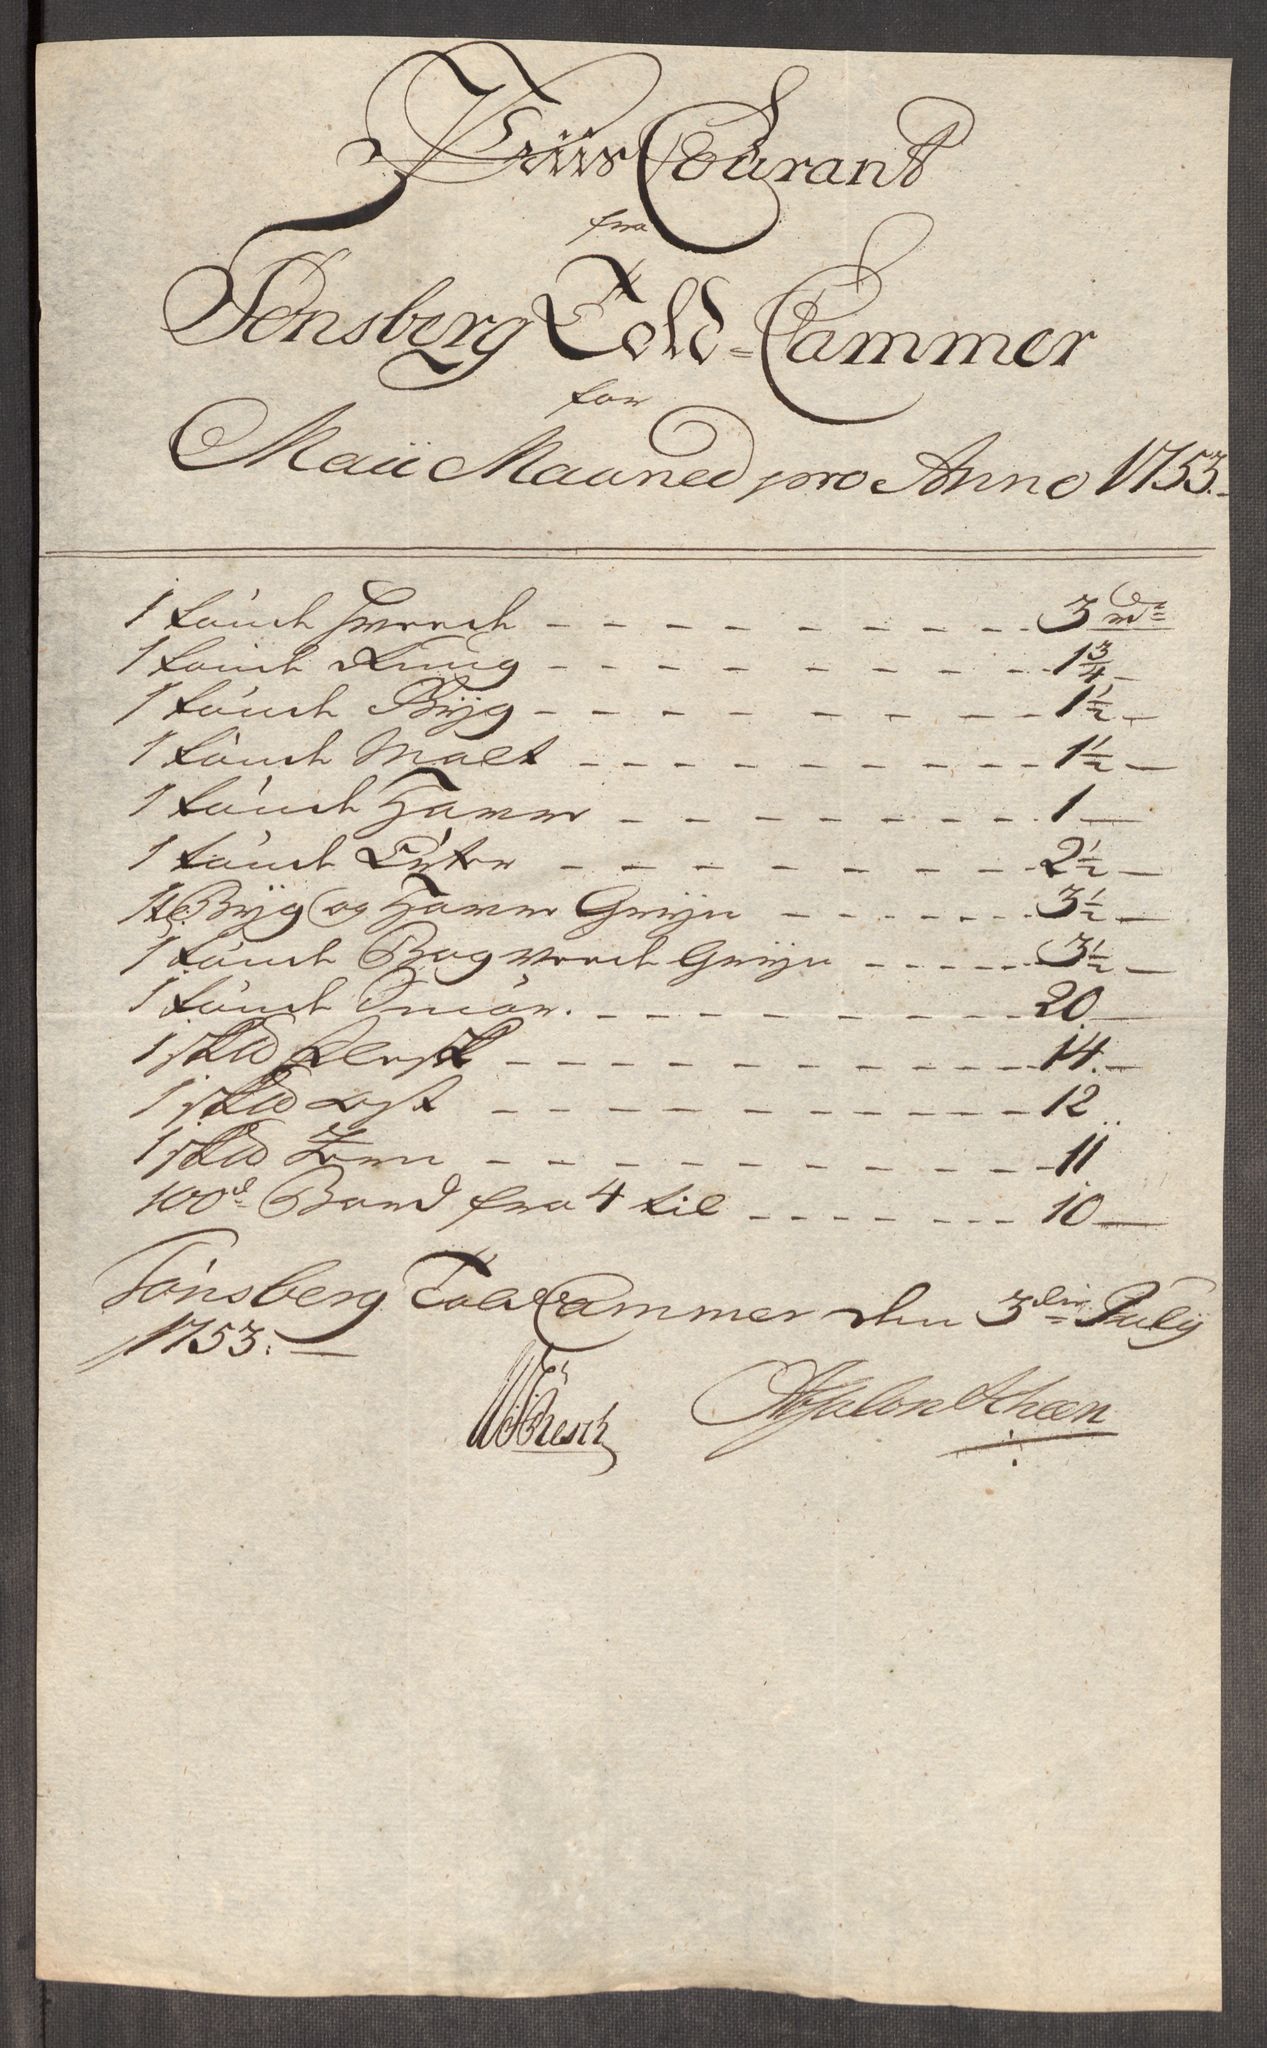 Priis Courant
fra
Tønsberg Told=Cammer
for
Maii Maaned pro Anno 1753.
1 tønde Hvede - - - 3 rd
1 tønde Rug - - - 1 3/4 -
1 tønde Byg - - - 1 1/2 -
1 tønde Malt - - - 1 1/2 -
1 tønde Havre - - - 1 -
1 tønde Erter - - - 2 1/2 -
1 td Byg og Havre Gryn - - - 3 1/2 -
1 tønde Boghvede Gryn - - - 3 1/2 -
1 tønde Smør. - - - 20 -
1 sk℔ Flesk - - - 14. -
1 sk℔ Ost - - - 12
1 sk℔ - - - 11
100d Bord fra 4 til - - - 10 -
Tønsberg Told Cammer den 3die July
1753. -
Resch Absalon Scheen